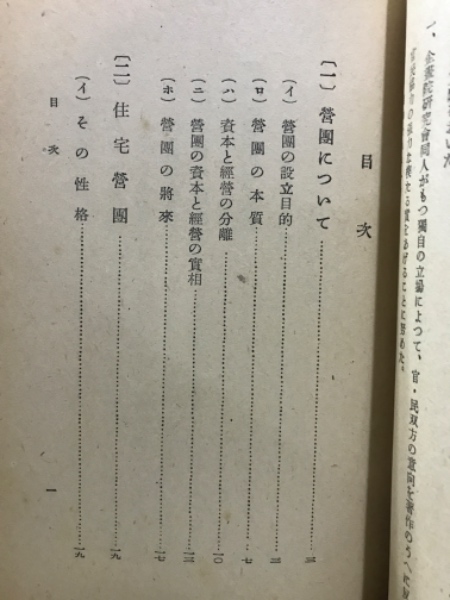 一、企畫院研究會同人がもつ獨自の立場によつて、官・民双方の意向を著作のうへに反
目次
〔一〕營團について……三
(イ)營團の設立目的……三
(ロ)營團の本質……七
(ハ)資本と經營の分離……一〇
(ニ)營團の資本と經營の實相……一三
(ホ)營團の將來……一七
〔二〕住宅營團……一九
(イ)その性格……一九
目次
一